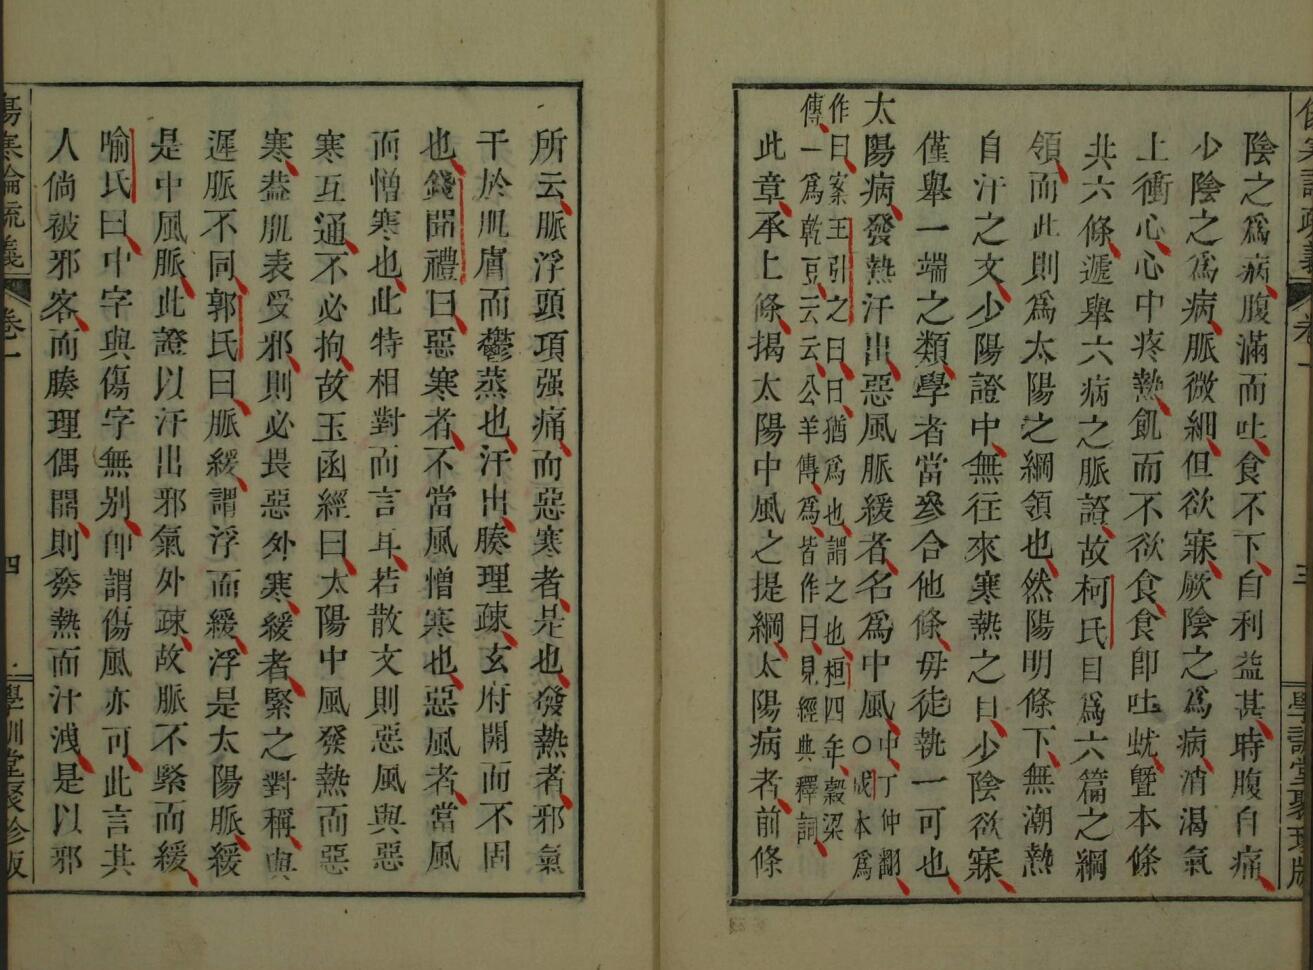 陰之爲病、腹滿而吐、食不下、自利益甚、時腹自痛、
少陰之爲病、脈微細、但欲寐、厥陰之爲病、消渴氣
上衝心、心中疼熱、飢而不欲食、食即吐蚘、曁本條
共六條、遞舉六病之脈證、故柯氏目爲六篇之綱
領、而此則爲太陽之綱領也、然陽明條下、無潮熱
自汗之文、少陽證中、無往來寒熱之目、少陰欲寐、
僅舉一端之類、學者當參合他條、毋徒執一可也、
太陽病、發熱汗出、惡風脈緩者、名爲中風、中、丁仲翻、〇成本爲
作曰、案王引之曰、曰、猶爲也、謂之也、桓四年、穀梁
傳、一爲乾豆、云云、公羊傳、爲、皆作曰、見經典釋詞、
此章、承上條、揭太陽中風之提綱、太陽病者、前條
傷寒論疏義 卷一 三 學訓堂聚珍版
所云、脈浮頭項强痛、而惡寒者、是也、發熱者、邪氣
干於肌膚而鬱蒸也、汗出、腠理疎、玄府開而不固
也、錢聞禮曰、惡寒者、不當風憎寒也、惡風者、當風
而憎寒也、此特相對而言耳、若散文則惡風與惡
寒互通、不必拘、故玉函經曰、太陽中風發熱而惡
寒、葢肌表受邪、則必畏惡外寒、緩者、緊之對稱、與
遲脈不同、郭氏曰、脈緩、謂浮而緩、浮是太陽脈、緩
是中風脈、此證以汗出邪氣外疎、故脈不緊而緩、
喻氏曰、中字與傷字無別、即謂傷風亦可、此言其
人倘被邪客、而腠理偶開、則發熱而汗洩、是以邪
傷寒論疏義 卷一 四 學訓堂聚珍版